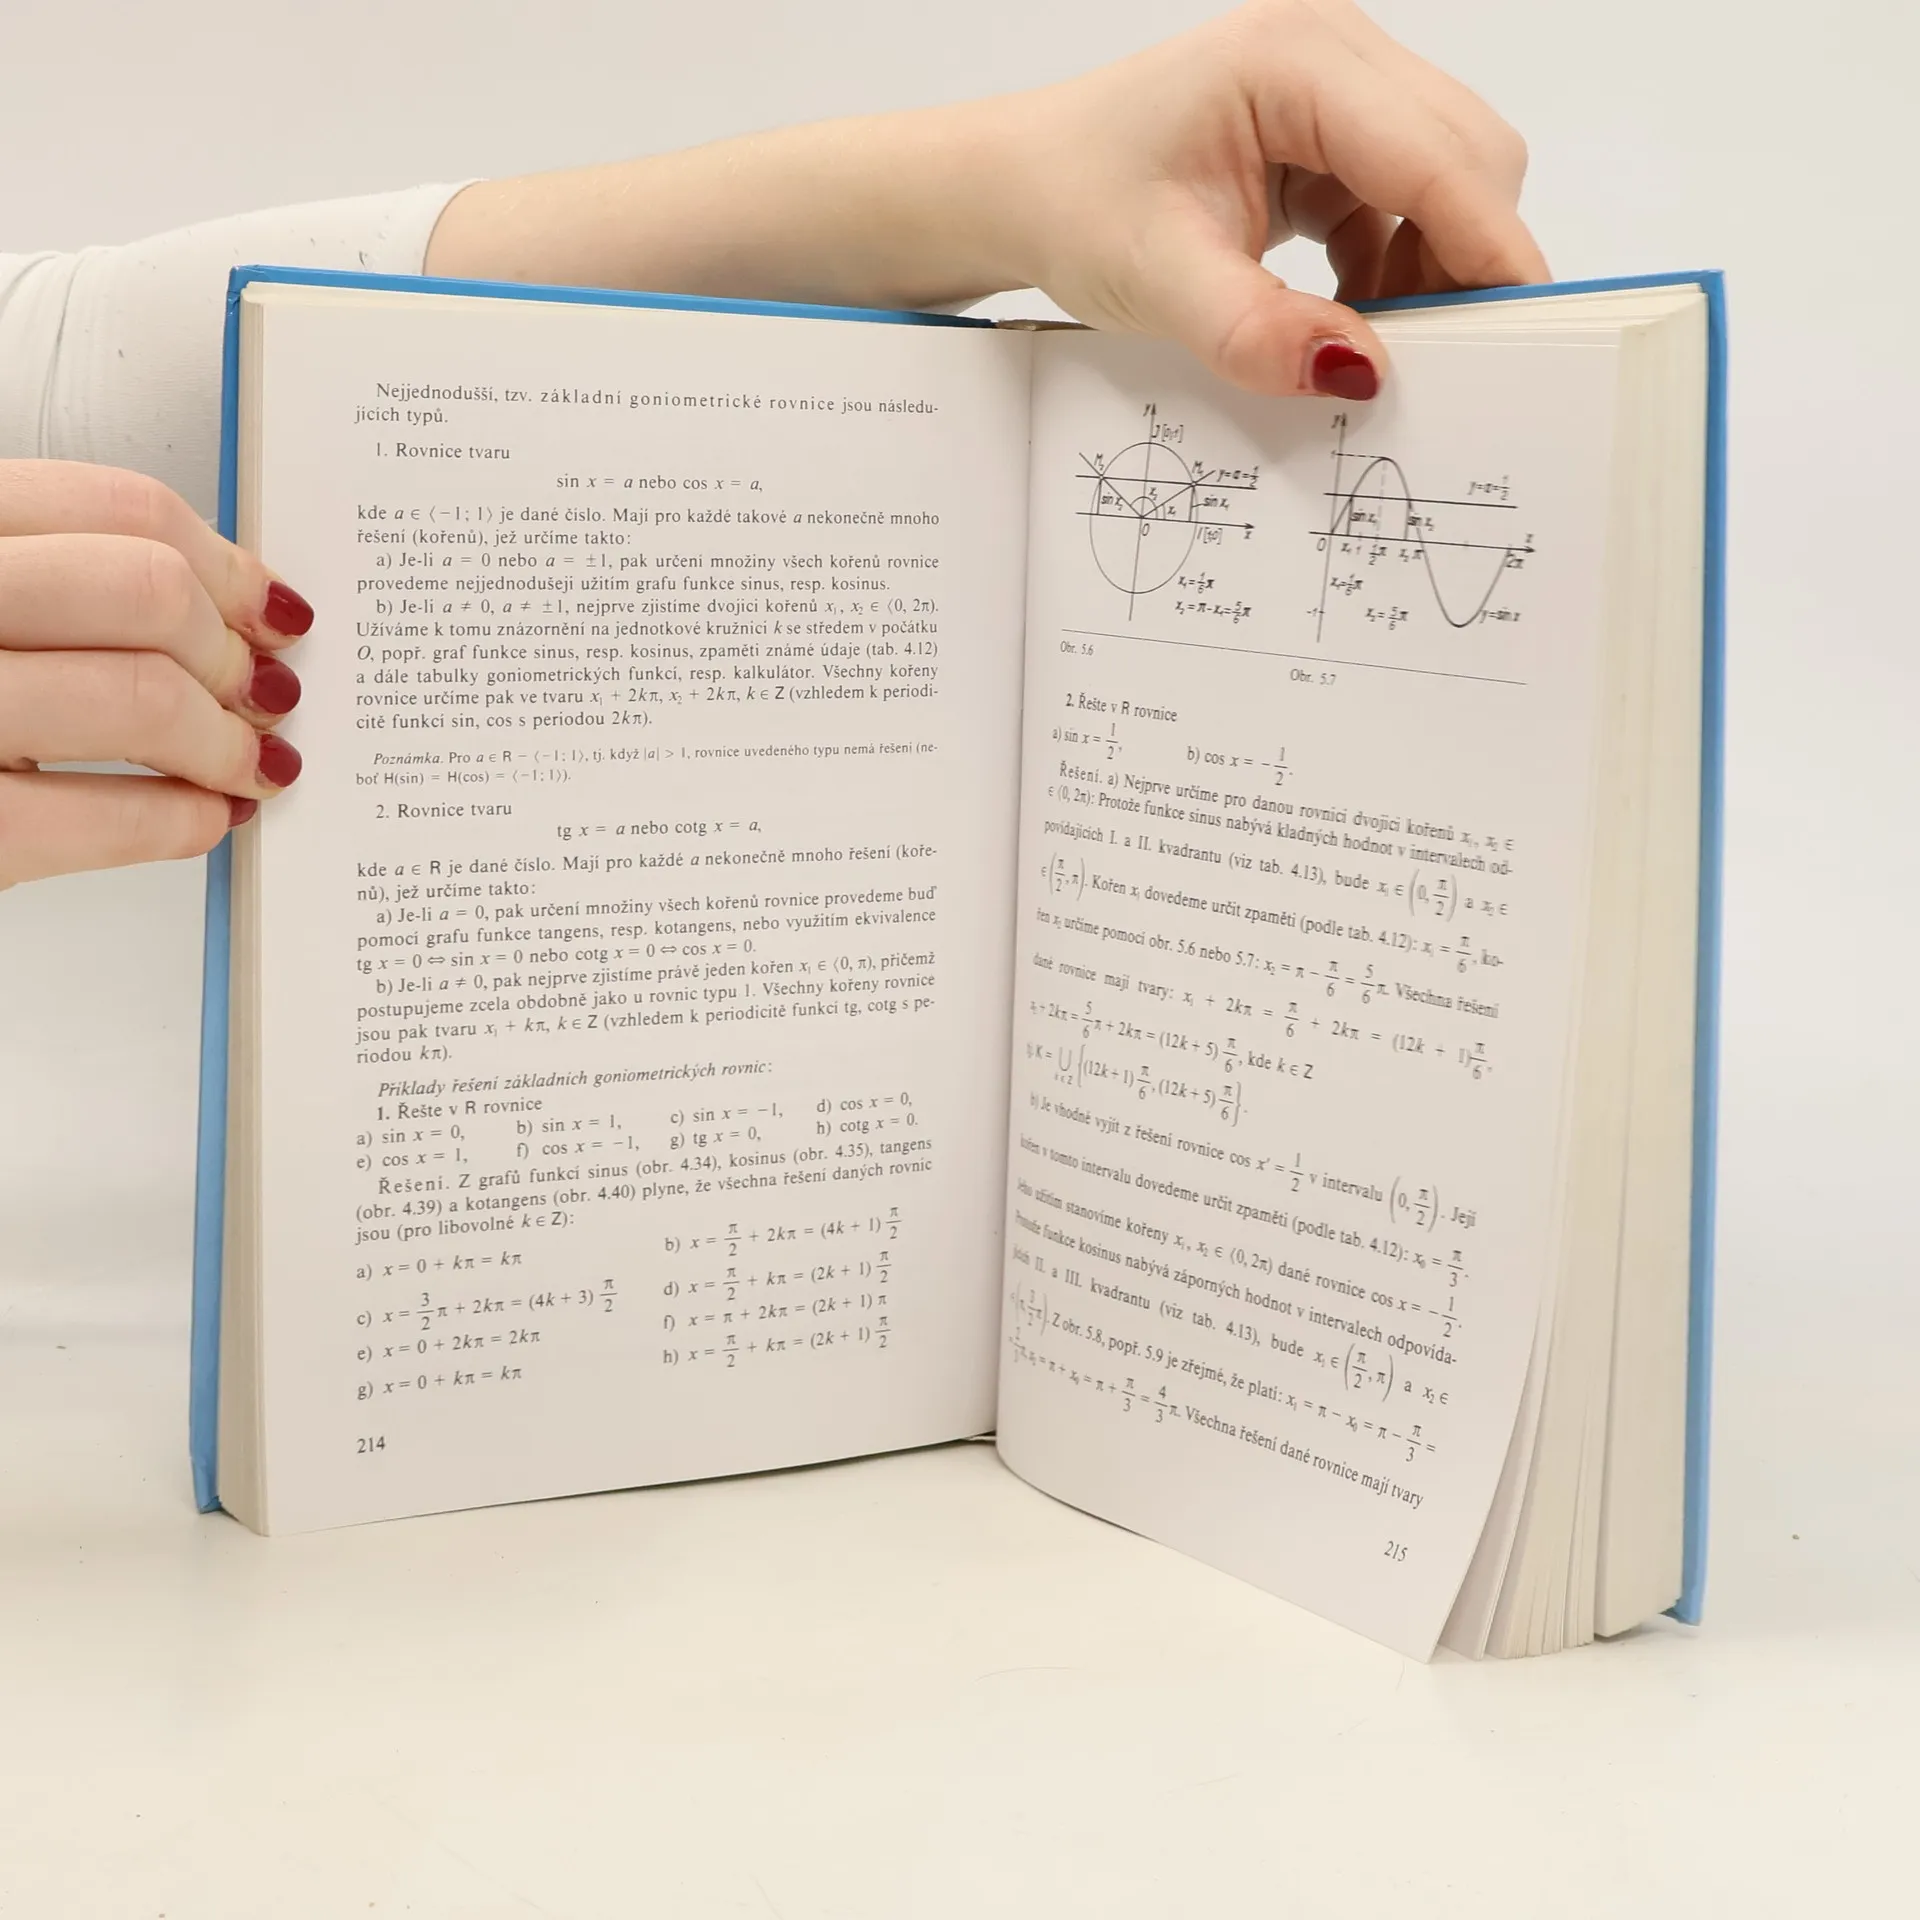 Nejjednodušší, tzv. základní goniometrické rovnice jsou následu-
jících typů.
1. Rovnice tvaru
sin x = a nebo cos x = a,
kde a ∈ ⟨−1; 1⟩ je dané číslo. Mají pro každé takové a nekonečně mnoho
řešení (kořenů), jež určíme takto:
a) Je-li a = 0 nebo a = ±1, pak určení množiny všech kořenů rovnice
provedeme nejjednodušeji užitím grafu funkce sinus, resp. kosinus.
b) Je-li a ≠ 0, a ≠ ±1, nejprve zjistíme dvojici kořenů x₁, x₂ ∈ ⟨0, 2π).
Užíváme k tomu znázornění na jednotkové kružnici k se středem v počátku
O, popř. graf funkce sinus, resp. kosinus, zpaměti známé údaje (tab. 4.12)
a dále tabulky goniometrických funkcí, resp. kalkulátor. Všechny kořeny
rovnice určíme pak ve tvaru x₁ + 2kπ, x₂ + 2kπ, k ∈ Z (vzhledem k periodi-
citě funkcí sin, cos s periodou 2kπ).
Poznámka. Pro a ∈ R − ⟨−1; 1⟩, tj. když |a| > 1, rovnice uvedeného typu nemá řešení (ne-
boť H(sin) = H(cos) = ⟨−1; 1⟩).
2. Rovnice tvaru
tg x = a nebo cotg x = a,
kde a ∈ R je dané číslo. Mají pro každé a nekonečně mnoho řešení (koře-
nů), jež určíme takto:
a) Je-li a = 0, pak určení množiny všech kořenů rovnice provedeme buď
pomocí grafu funkce tangens, resp. kotangens, nebo využitím ekvivalence
tg x = 0 ⇔ sin x = 0 nebo cotg x = 0 ⇔ cos x = 0.
b) Je-li a ≠ 0, pak nejprve zjistíme právě jeden kořen x₁ ∈ ⟨0, π), přičemž
postupujeme zcela obdobně jako u rovnic typu 1. Všechny kořeny rovnice
jsou pak tvaru x₁ + kπ, k ∈ Z (vzhledem k periodicitě funkcí tg, cotg s pe-
riodou kπ).
Příklady řešení základních goniometrických rovnic:
1. Řešte v R rovnice
a) sin x = 0, b) sin x = 1, c) sin x = −1, d) cos x = 0,
e) cos x = 1, f) cos x = −1, g) tg x = 0, h) cotg x = 0.
Řešení. Z grafů funkcí sinus (obr. 4.34), kosinus (obr. 4.35), tangens
(obr. 4.39) a kotangens (obr. 4.40) plyne, že všechna řešení daných rovnic
jsou (pro libovolné k ∈ Z):
a) x = 0 + kπ = kπ b) x = π/2 + 2kπ = (4k + 1) π/2
c) x = 3/2 π + 2kπ = (4k + 3) π/2 d) x = π/2 + kπ = (2k + 1) π/2
e) x = 0 + 2kπ = 2kπ f) x = π + 2kπ = (2k + 1) π
g) x = 0 + kπ = kπ h) x = π/2 + kπ = (2k + 1) π/2
214
y J [0;1]
M₂ M₁ y=a=1/2
sin x₂ x₂ x₁ sin x₁
O I [1;0] x
x₁=1/6 π
x₂=π−x₁=5/6 π
Obr. 5.6
y
1 y=a=1/2
sin x₁ sin x₂
O x₁ 1 1/2 π x₂ π 2π x
x₁=1/6 π
−1 x₂=5/6 π y=sin x
Obr. 5.7
2. Řešte v R rovnice
a) sin x = 1/2, b) cos x = −1/2.
Řešení. a) Nejprve určíme pro danou rovnici dvojici kořenů x₁, x₂ ∈
∈ ⟨0, 2π): Protože funkce sinus nabývá kladných hodnot v intervalech od-
povídajících I. a II. kvadrantu (viz tab. 4.13), bude x₁ ∈ (0, π/2) a x₂ ∈
∈ (π/2, π). Kořen x₁ dovedeme určit zpaměti (podle tab. 4.12): x₁ = π/6, ko-
řen x₂ určíme pomocí obr. 5.6 nebo 5.7: x₂ = π − π/6 = 5/6 π. Všechna řešení
dané rovnice mají tvary: x₁ + 2kπ = π/6 + 2kπ = (12k + 1)π/6,
x₂ + 2kπ = 5/6 π + 2kπ = (12k + 5) π/6, kde k ∈ Z
K = ⋃ k∈Z {(12k + 1) π/6, (12k + 5) π/6}.
b) Je vhodné vyjít z řešení rovnice cos x′ = 1/2 v intervalu (0, π/2). Její
kořen v tomto intervalu dovedeme určit zpaměti (podle tab. 4.12): x₀ = π/3.
Jeho užitím stanovíme kořeny x₁, x₂ ∈ ⟨0, 2π) dané rovnice cos x = −1/2.
Protože funkce kosinus nabývá záporných hodnot v intervalech odpovída-
jících II. a III. kvadrantu (viz tab. 4.13), bude x₁ ∈ (π/2, π) a x₂ ∈
∈ (π, 3/2 π). Z obr. 5.8, popř. 5.9 je zřejmé, že platí: x₁ = π − x₀ = π − π/3 =
= 2/3 π, x₂ = π + x₀ = π + π/3 = 4/3 π. Všechna řešení dané rovnice mají tvary
215